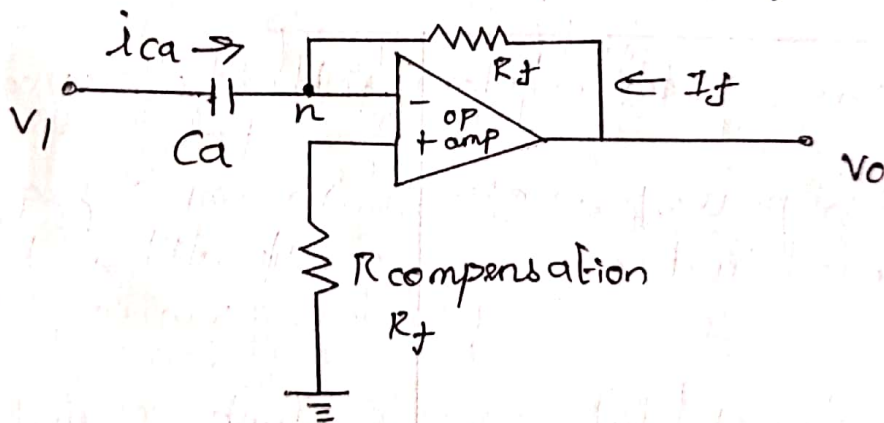 ica →
Rf
← If
V1
Ca
n
-
op
+ amp
Vo
R compensation
Rf